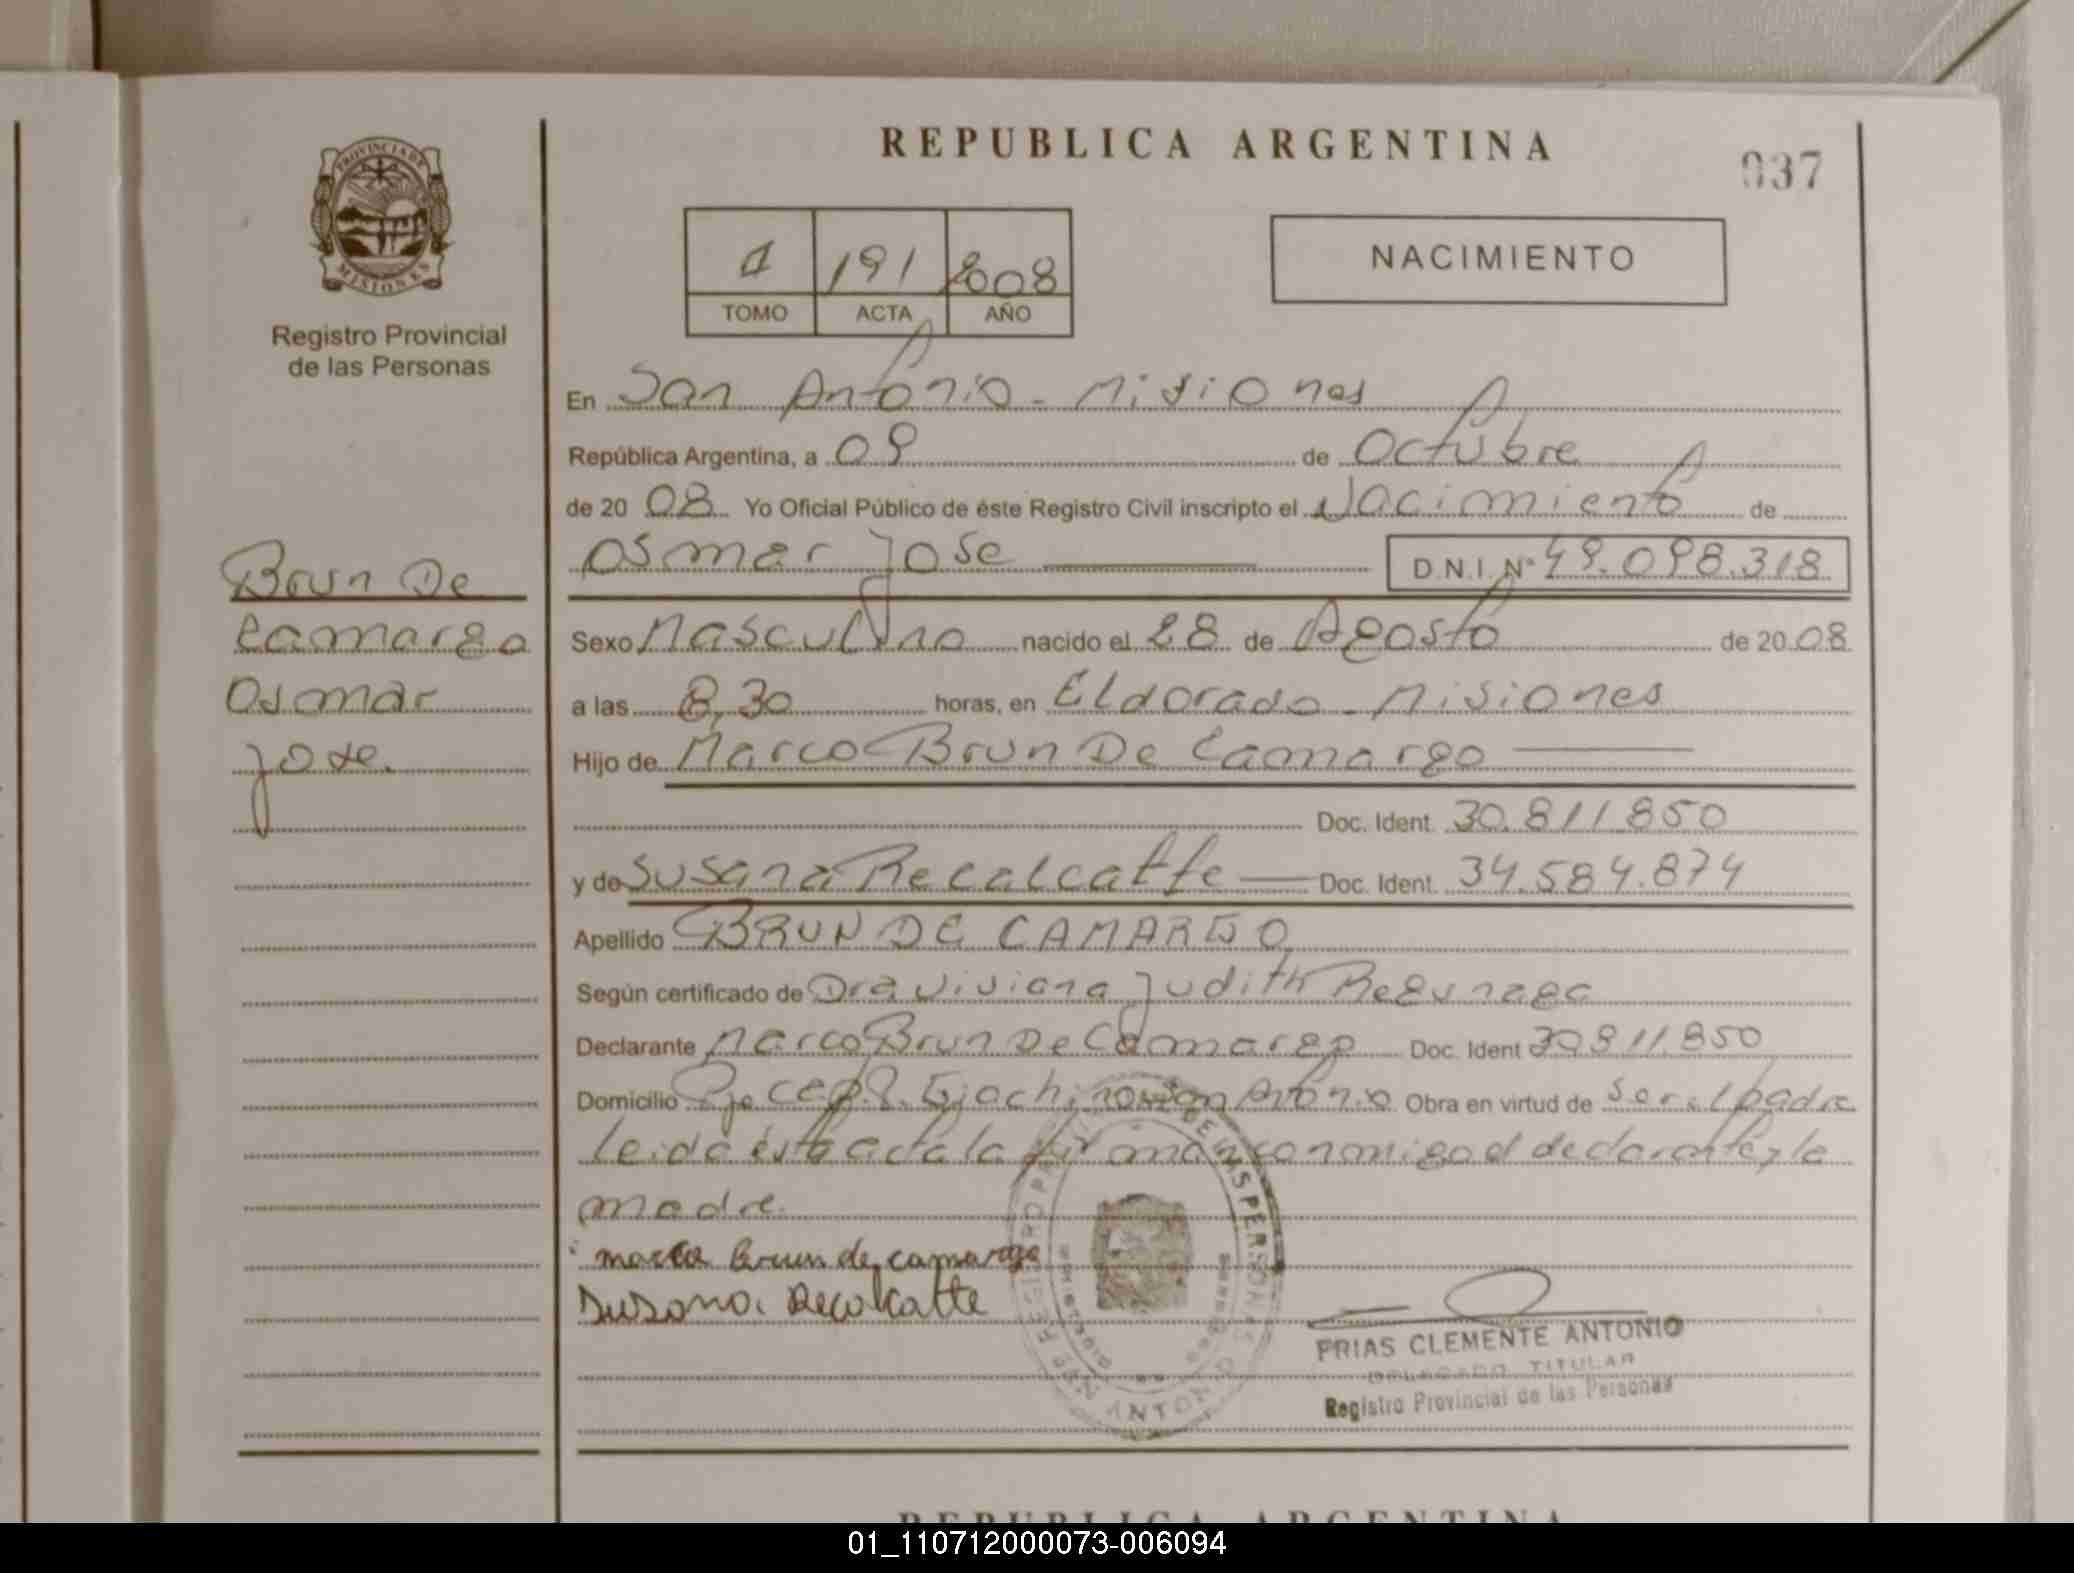 REPUBLICA ARGENTINA
037
PROVINCIA DE
MISIONES
Registro Provincial
de las Personas
1 191 2008
TOMO ACTA AÑO
NACIMIENTO
En San Antonio - Misiones
República Argentina, a 09 de Octubre
de 20 08 Yo Oficial Público de éste Registro Civil inscripto el Nacimiento de
Osmar Jose D.N.I. Nº 49.098.318
Brun De
Camargo
Osmar
Jose.
Sexo Masculino nacido el 28 de Agosto de 20 08
a las 8,30 horas, en Eldorado - Misiones
Hijo de Marco Brun De Camargo
Doc. Ident. 30.811.850
y de Susana Recalcatte Doc. Ident. 34.584.874
Apellido BRUN DE CAMARGO
Según certificado de Dra Viviana Judith
Declarante Marco Brun De Camargo Doc. Ident 30811.850
Domicilio San Antonio Obra en virtud de ser el padre
Leida ésta acta la firman conmigo el declarante y la
madre.
marco Brun de camargo
Susana Recalcatte
SAN ANTONIO
FRIAS CLEMENTE ANTONIO
DELEGADO TITULAR
Registro Provincial de las Personas
REPUBLICA ARGENTINA
01_110712000073-006094